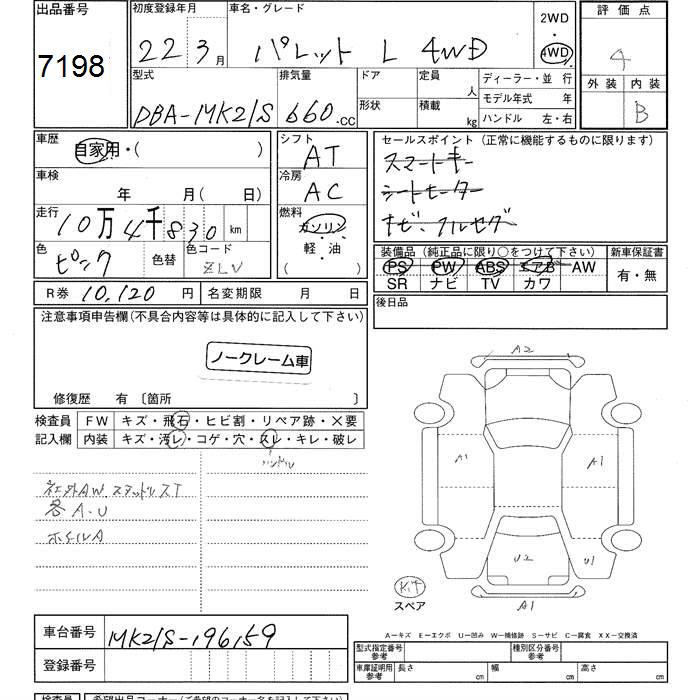 出品番号
7198
初度登録年月 22 3月
車名・グレード パレット L 4WD
2WD
・
4WD
評価点
4
外装 内装
B
型式 DBA-MK21S
排気量 660.CC
ドア
形状
定員 人
積載 kg
ディーラー・並行
モデル年式 年
ハンドル 左・右
車歴 自家用・( )
シフト AT
車検 年 月( 日)
冷房 AC
走行 10万4千830km
燃料 ガソリン
軽・油
( )
色 ピンク
色替
色コード ZLV
R券 10,120円
名変期限 月 日
セールスポイント(正常に機能するものに限ります)
スマートキー
シートヒーター
ナビ、フルセグ
装備品(純正品に限り○をつけて下さい)
PS PW ABS エアB AW
SR ナビ TV カワ
新車保証書
有・無
後日品
注意事項申告欄(不具合内容等は具体的に記入して下さい)
ノークレーム車
修復歴 有〔箇所 〕
検査員 FW キズ・飛石・ヒビ割・リペア跡・X要
記入欄 内装 キズ・汚レ・コゲ・穴・スレ・キレ・破レ
ハンドル
社外AW スタッドレスT
各A・U
ホイルA
A2
A1
A1
U2
U1
A1
スペア
A-キズ E-エクボ U-凹み W-補修跡 S-サビ C-腐食 XX-交換済
車台番号 MK21S-196159
登録番号
型式指定番号 参考
種別区分番号 参考
車庫証明用 参考 長さ cm 幅 cm 高さ cm